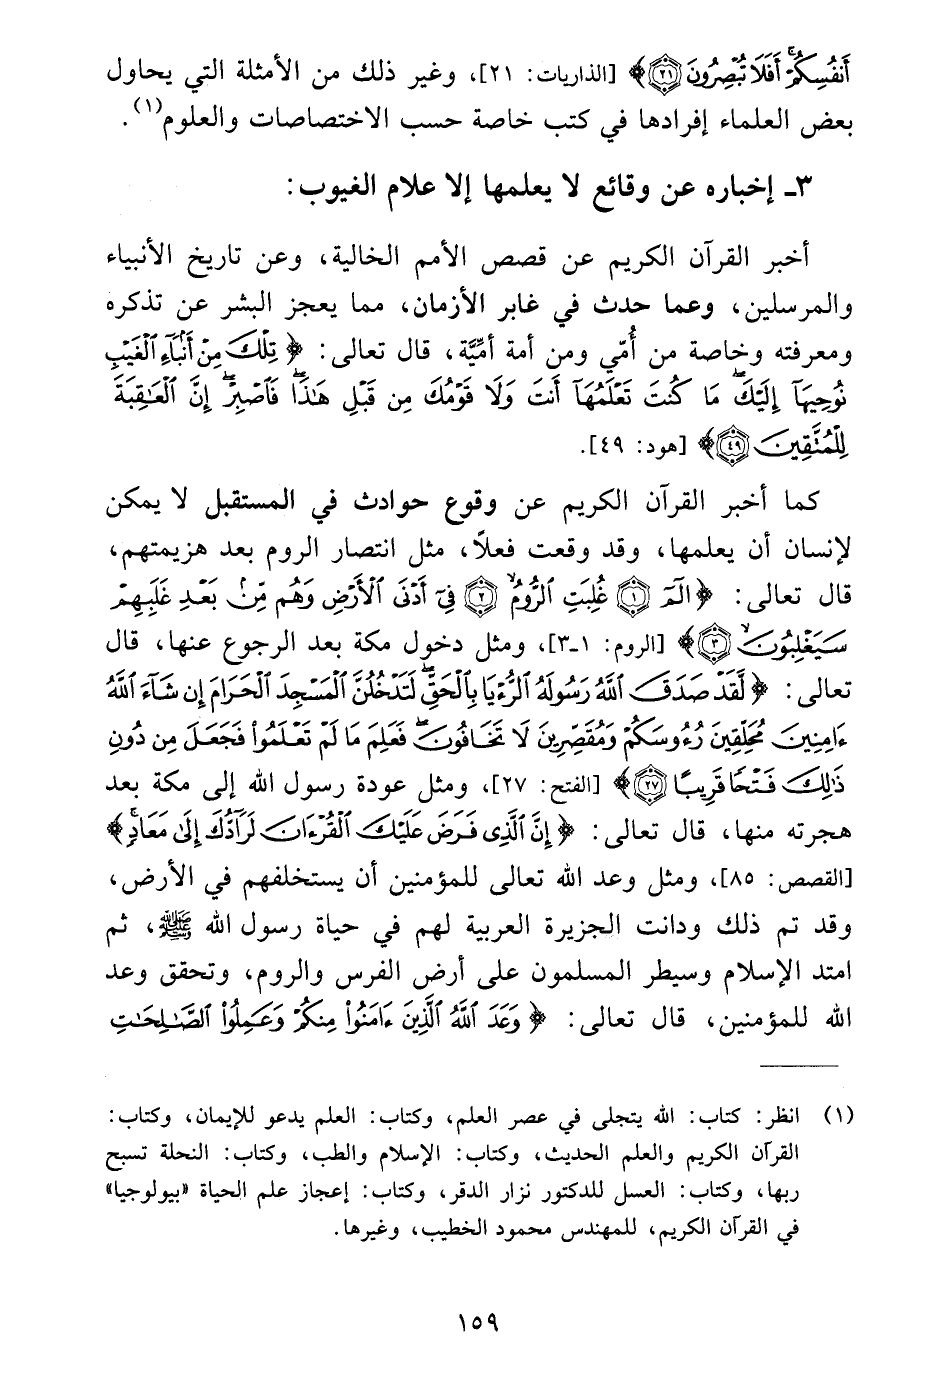 أَنفُسِكُمْ ۚ أَفَلَا تُبْصِرُونَ ﴿٢١﴾﴾ [الذاريات: ٢١]، وغير ذلك من الأمثلة التي يحاول
بعض العلماء إفرادها في كتب خاصة حسب الاختصاصات والعلوم(١).
٣ـ إخباره عن وقائع لا يعلمها إلا علام الغيوب:
أخبر القرآن الكريم عن قصص الأمم الخالية، وعن تاريخ الأنبياء
والمرسلين، وعما حدث في غابر الأزمان، مما يعجز البشر عن تذكره
ومعرفته وخاصة من أُمّي ومن أمة أمِّيَّة، قال تعالى: ﴿تِلْكَ مِنْ أَنۢبَآءِ ٱلْغَيْبِ
نُوحِيهَآ إِلَيْكَ ۖ مَا كُنتَ تَعْلَمُهَآ أَنتَ وَلَا قَوْمُكَ مِن قَبْلِ هَـٰذَا ۖ فَٱصْبِرْ ۖ إِنَّ ٱلْعَـٰقِبَةَ
لِلْمُتَّقِينَ ﴿٤٩﴾﴾ [هود: ٤٩].
كما أخبر القرآن الكريم عن وقوع حوادث في المستقبل لا يمكن
لإنسان أن يعلمها، وقد وقعت فعلاً، مثل انتصار الروم بعد هزيمتهم،
قال تعالى: ﴿الٓمٓ ﴿١﴾ غُلِبَتِ ٱلرُّومُ ﴿٢﴾ فِىٓ أَدْنَى ٱلْأَرْضِ وَهُم مِّنۢ بَعْدِ غَلَبِهِمْ
سَيَغْلِبُونَ ﴿٣﴾﴾ [الروم: ١ـ٣]، ومثل دخول مكة بعد الرجوع عنها، قال
تعالى: ﴿لَّقَدْ صَدَقَ ٱللَّهُ رَسُولَهُ ٱلرُّءْيَا بِٱلْحَقِّ ۖ لَتَدْخُلُنَّ ٱلْمَسْجِدَ ٱلْحَرَامَ إِن شَآءَ ٱللَّهُ
ءَامِنِينَ مُحَلِّقِينَ رُءُوسَكُمْ وَمُقَصِّرِينَ لَا تَخَافُونَ ۖ فَعَلِمَ مَا لَمْ تَعْلَمُوا۟ فَجَعَلَ مِن دُونِ
ذَٰلِكَ فَتْحًا قَرِيبًا ﴿٢٧﴾﴾ [الفتح: ٢٧]، ومثل عودة رسول الله إلى مكة بعد
هجرته منها، قال تعالى: ﴿إِنَّ ٱلَّذِى فَرَضَ عَلَيْكَ ٱلْقُرْءَانَ لَرَآدُّكَ إِلَىٰ مَعَادٍ ۚ﴾
[القصص: ٨٥]، ومثل وعد الله تعالى للمؤمنين أن يستخلفهم في الأرض،
وقد تم ذلك ودانت الجزيرة العربية لهم في حياة رسول الله ﷺ، ثم
امتد الإسلام وسيطر المسلمون على أرض الفرس والروم، وتحقق وعد
الله للمؤمنين، قال تعالى: ﴿وَعَدَ ٱللَّهُ ٱلَّذِينَ ءَامَنُوا۟ مِنكُمْ وَعَمِلُوا۟ ٱلصَّـٰلِحَـٰتِ
(١) انظر: كتاب: الله يتجلى في عصر العلم، وكتاب: العلم يدعو للإيمان، وكتاب:
القرآن الكريم والعلم الحديث، وكتاب: الإسلام والطب، وكتاب: النحلة تسبح
ربها، وكتاب: العسل للدكتور نزار الدقر، وكتاب: إعجاز علم الحياة «بيولوجيا»
في القرآن الكريم، للمهندس محمود الخطيب، وغيرها.
١٥٩